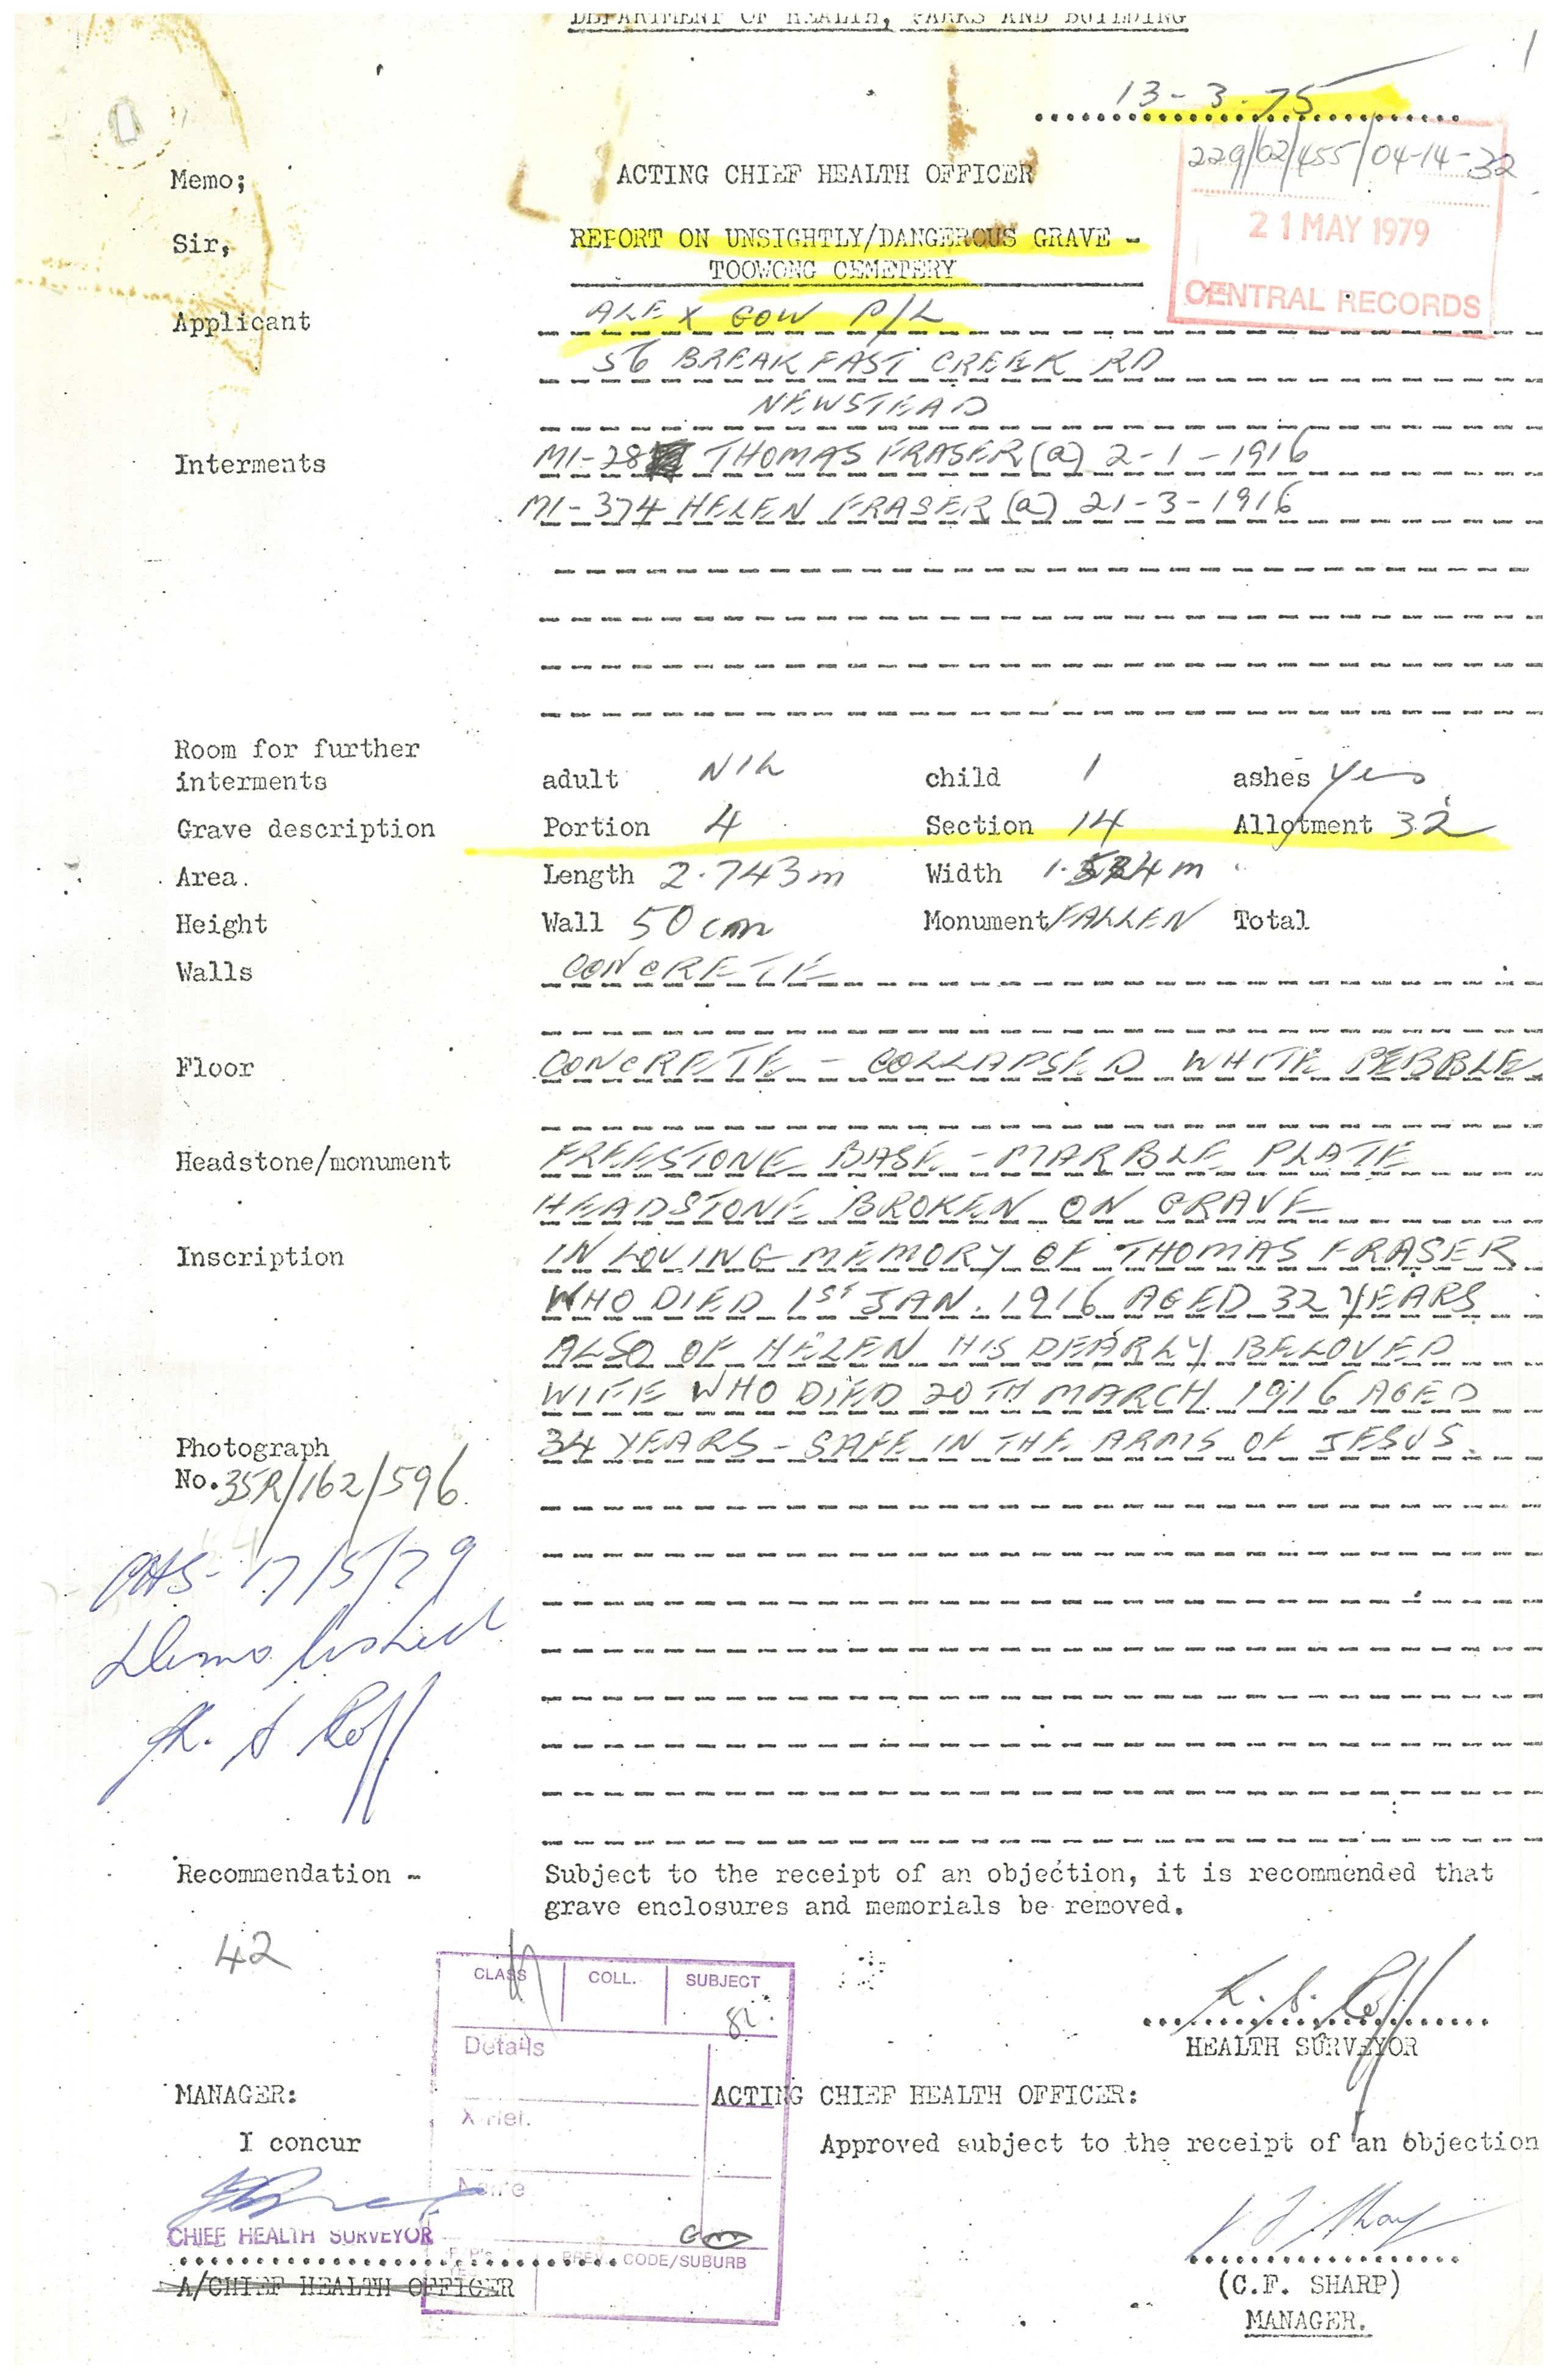 DEPARTMENT OF HEALTH, PARKS AND BUILDING
13-3-75
229/02/455/04-14-32
Memo; ACTING CHIEF HEALTH OFFICER
21 MAY 1979
Sir, REPORT ON UNSIGHTLY/DANGEROUS GRAVE -
TOOWONG CEMETERY
CENTRAL RECORDS
Applicant ALEX GOW P/L
56 BREAKFAST CREEK RD
NEWSTEAD
Interments M1-28 THOMAS FRASER (a) 2-1-1916
M1-374 HELEN FRASER (a) 21-3-1916
Room for further
interments adult NIL child 1 ashes Yes
Grave description Portion 4 Section 14 Allotment 32
Area. Length 2.743m Width
Height Wall 50cm Monument FALLEN Total
Walls CONCRETE
Floor CONCRETE - COLLAPSED WHITE PEBBLE
Headstone/monument FREESTONE BASE - MARBLE PLATE
HEADSTONE BROKEN ON GRAVE
Inscription IN LOVING MEMORY OF THOMAS FRASER
WHO DIED 1ST JAN. 1916 AGED 32 YEARS
ALSO OF HELEN HIS DEARLY BELOVED
WIFE WHO DIED 20TH MARCH 1916 AGED
34 YEARS - SAFE IN THE ARMS OF JESUS.
Photograph
No. 35R/162/596
17/5/79
Demolished
Recommendation - Subject to the receipt of an objection, it is recommended that
grave enclosures and memorials be removed.
42
CLASS COLL. SUBJECT
Details
HEALTH SURVEYOR
MANAGER: ACTING CHIEF HEALTH OFFICER:
X Ref.
I concur Approved subject to the receipt of an objection
Name
CHIEF HEALTH SURVEYOR
PREV. CODE/SUBURB
A/CHIEF HEALTH OFFICER (C.F. SHARP)
MANAGER.